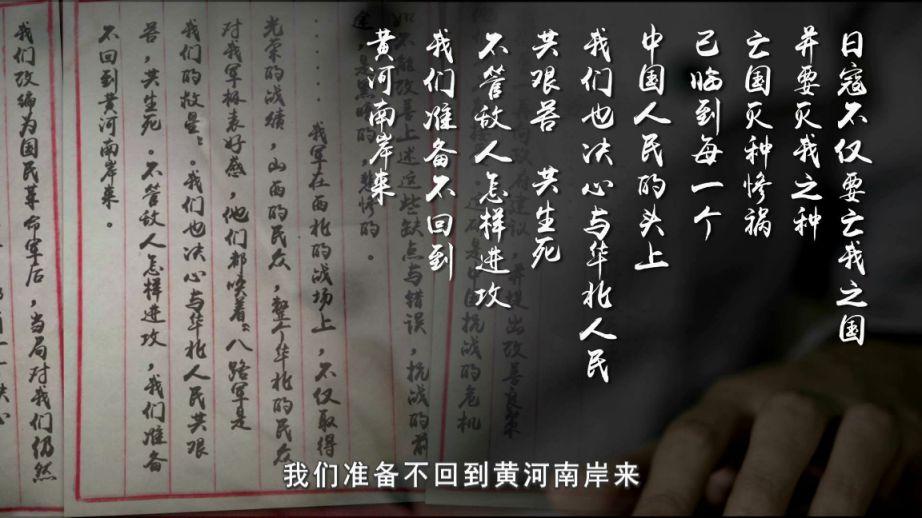 日寇不仅要亡我之国
并要灭我之种
亡国灭种惨祸
已临到每一个
中国人民的头上
我们也决心与华北人民
共艰苦 共生死
不管敌人怎样进攻
我们准备不回到
黄河南岸来
建议，并提出改善良策
是中国抗战的危机
如不能改善上述这些缺点与错误，抗战的前
途，是黑暗的，悲惨的。
……我军在西北的战场上，不仅取得
光荣的战绩，山西的民众，整个华北的民众
对我军极表好感，他们都唤着“八路军是
我们的救星”。我们也决心与华北人民共艰
苦，共生死。不管敌人怎样进攻，我们准备
不回到黄河南岸来。
我们改编为国民革命军后，当局对我们仍然
我们准备不回到黄河南岸来